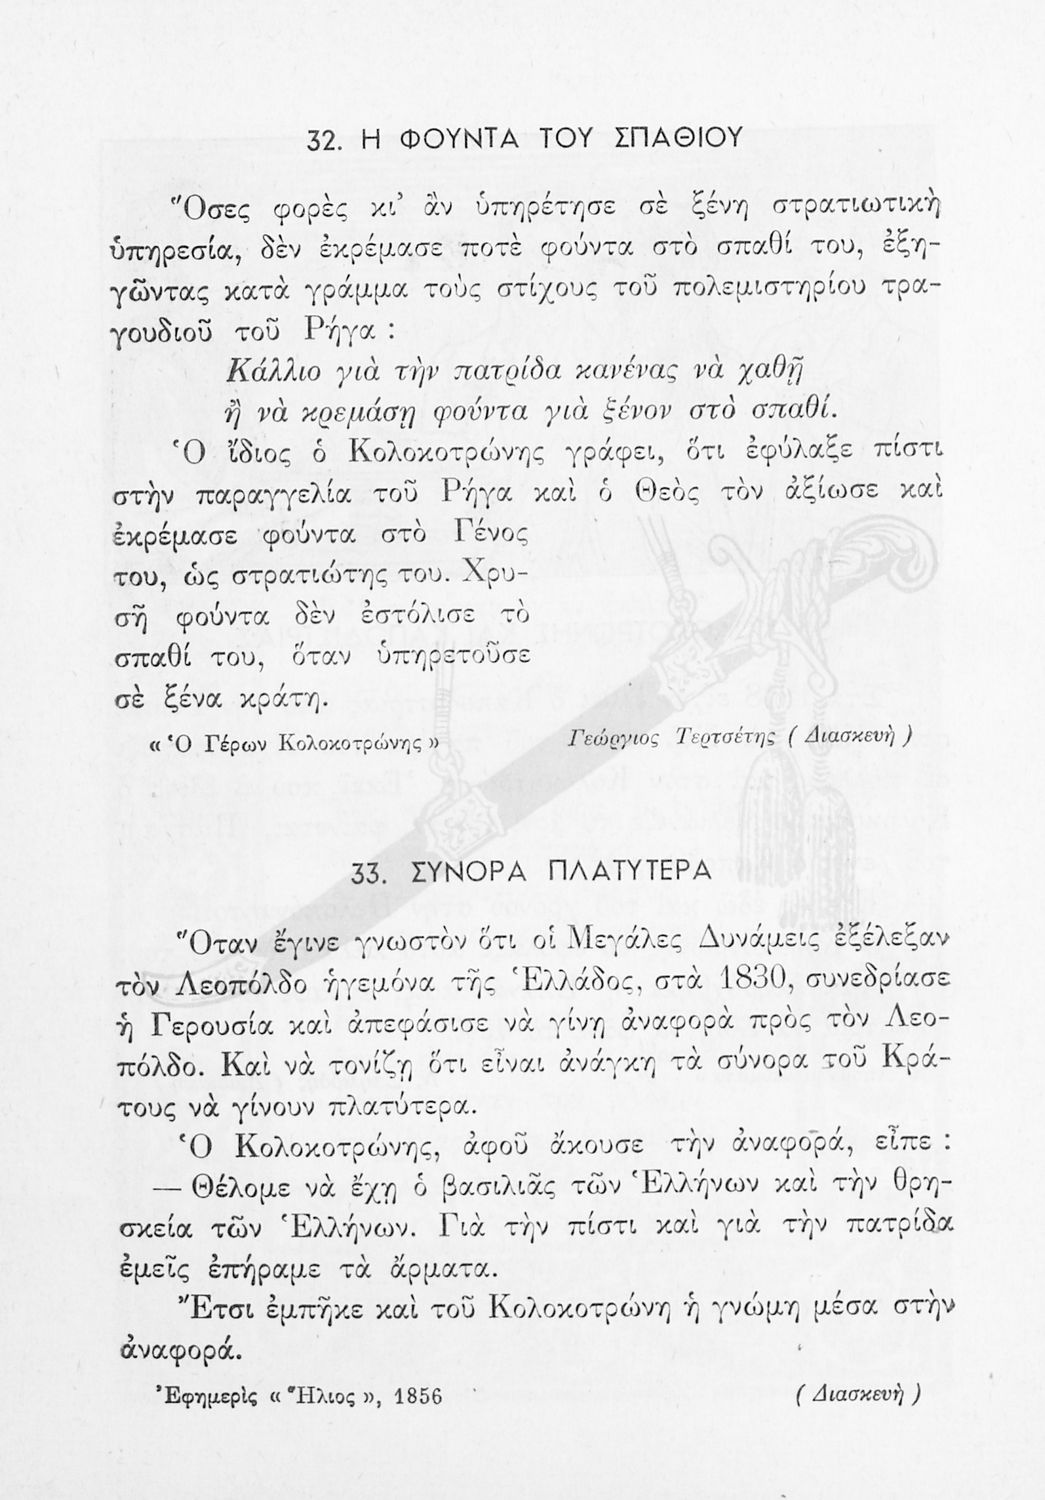 32. Η ΦΟΥΝΤΑ ΤΟΥ ΣΠΑΘΙΟΥ
Ὅσες φορὲς κι’ ἂν ὑπηρέτησε σὲ ξένη στρατιωτικὴ
ὑπηρεσία, δὲν ἐκρέμασε ποτὲ φούντα στὸ σπαθί του, ἐξη-
γῶντας κατὰ γράμμα τοὺς στίχους τοῦ πολεμιστηρίου τρα-
γουδιοῦ τοῦ Ρήγα :
Κάλλιο γιὰ τὴν πατρίδα κανένας νὰ χαθῇ
ἢ νὰ κρεμάσῃ φούντα γιὰ ξένον στὸ σπαθί.
Ὁ ἴδιος ὁ Κολοκοτρώνης γράφει, ὅτι ἐφύλαξε πίστι
στὴν παραγγελία τοῦ Ρήγα καὶ ὁ Θεὸς τὸν ἀξίωσε καὶ
ἐκρέμασε φούντα στὸ Γένος
του, ὡς στρατιώτης του. Χρυ-
σῆ φούντα δὲν ἐστόλισε τὸ
σπαθί του, ὅταν ὑπηρετοῦσε
σὲ ξένα κράτη.
« Ὁ Γέρων Κολοκοτρώνης » Γεώργιος Τερτσέτης ( Διασκευὴ )
33. ΣΥΝΟΡΑ ΠΛΑΤΥΤΕΡΑ
Ὅταν ἔγινε γνωστὸν ὅτι οἱ Μεγάλες Δυνάμεις ἐξέλεξαν
τὸν Λεοπόλδο ἡγεμόνα τῆς Ἑλλάδος, στὰ 1830, συνεδρίασε
ἡ Γερουσία καὶ ἀπεφάσισε νὰ γίνῃ ἀναφορὰ πρὸς τὸν Λεο-
πόλδο. Καὶ νὰ τονίζῃ ὅτι εἶναι ἀνάγκη τὰ σύνορα τοῦ Κρά-
τους νὰ γίνουν πλατύτερα.
Ὁ Κολοκοτρώνης, ἀφοῦ ἄκουσε τὴν ἀναφορά, εἶπε :
— Θέλομε νὰ ἔχῃ ὁ βασιλιᾶς τῶν Ἑλλήνων καὶ τὴν θρη-
σκεία τῶν Ἑλλήνων. Γιὰ τὴν πίστι καὶ γιὰ τὴν πατρίδα
ἐμεῖς ἐπήραμε τὰ ἄρματα.
Ἔτσι ἐμπῆκε καὶ τοῦ Κολοκοτρώνη ἡ γνώμη μέσα στὴν
ἀναφορά.
Ἐφημερὶς « Ἥλιος », 1856 ( Διασκευὴ )